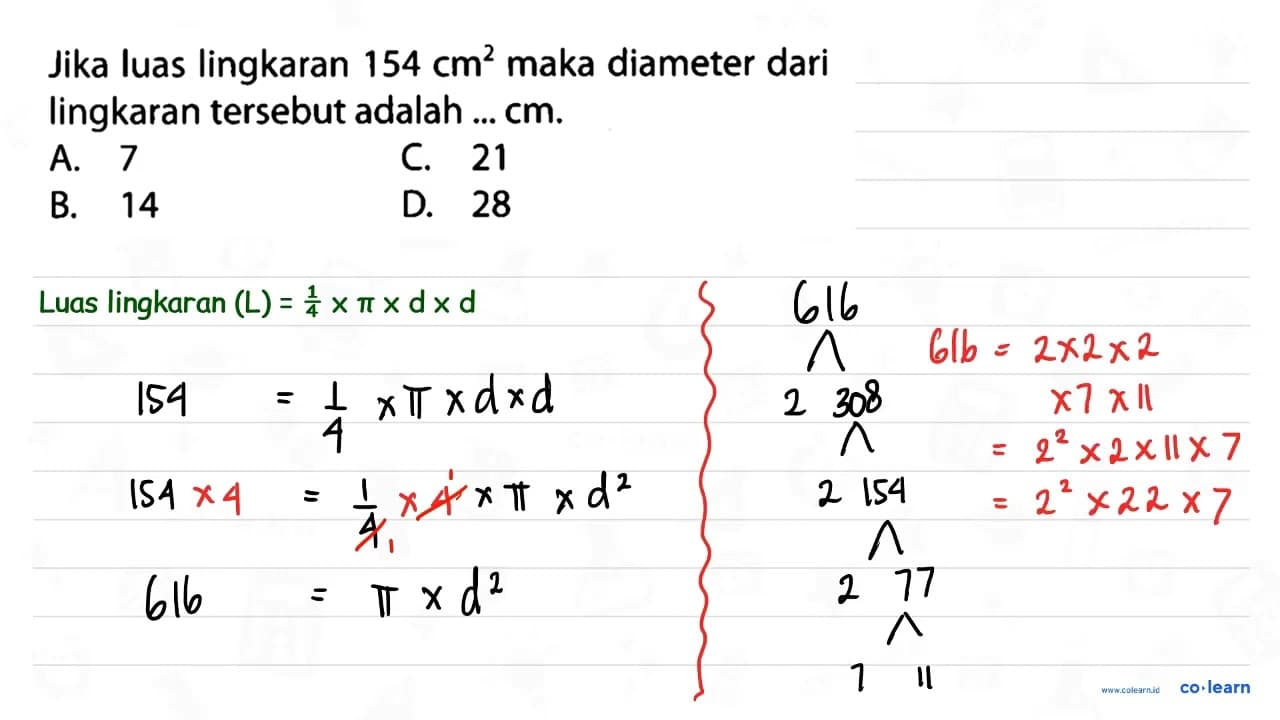 Jika luas lingkaran 154 cm² maka diameter dari
lingkaran tersebut adalah ... cm.
A. 7 C. 21
B. 14 D. 28
Luas lingkaran (L) = 1/4 x π x d x d
154 = 1/4 x π x d x d
154 x 4 = 1/4 1 x 4 1 x π x d²
616 = π x d²
616
2 308
2 154
2 77
7 11
616 = 2 x 2 x 2
x 7 x 11
= 2² x 2 x 11 x 7
= 2² x 22 x 7
www.colearn.id co·learn